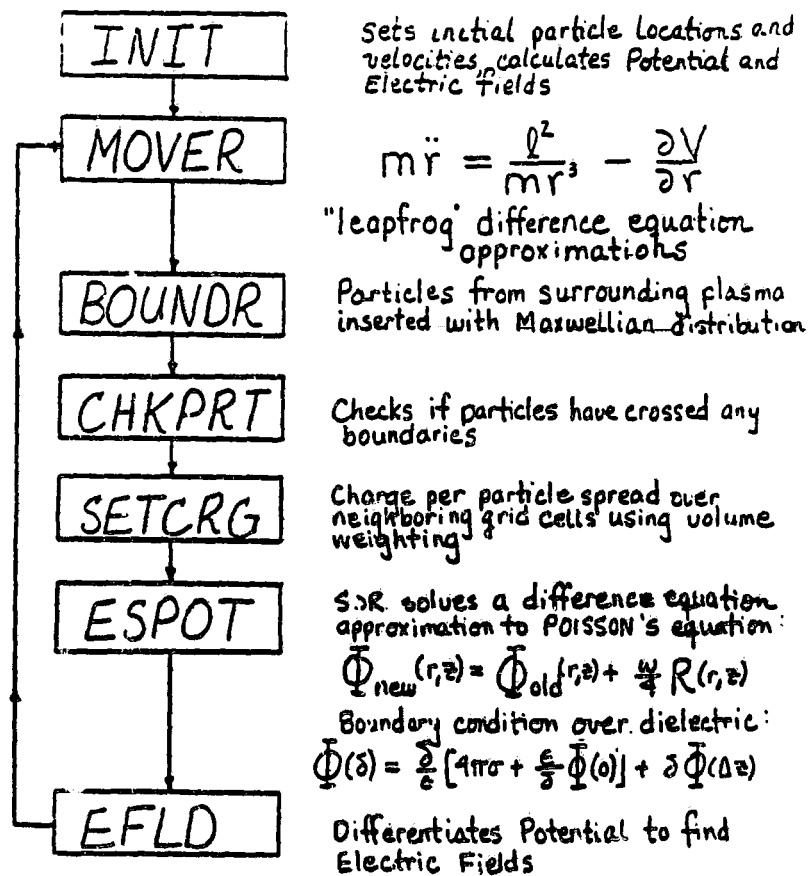 INIT
Sets initial particle locations and
velocities, calculates Potential and
Electric fields
MOVER
mr̈ = ℓ²/mr³ − ∂V/∂r
"leapfrog" difference equation
approximations
BOUNDR
Particles from surrounding plasma
inserted with Maxwellian distribution
CHKPRT
Checks if particles have crossed any
boundaries
SETCRG
Charge per particle spread over
neighboring grid cells using volume
weighting
ESPOT
S.O.R. solves a difference equation
approximation to POISSON's equation:
Φnew(r,z) = Φold(r,z) + ω/4 R(r,z)
Boundary condition over dielectric:
Φ(δ) = δ/ε [4πσ + ε/δ Φ(0)] + δ Φ(Δz)
EFLD
Differentiates Potential to find
Electric Fields